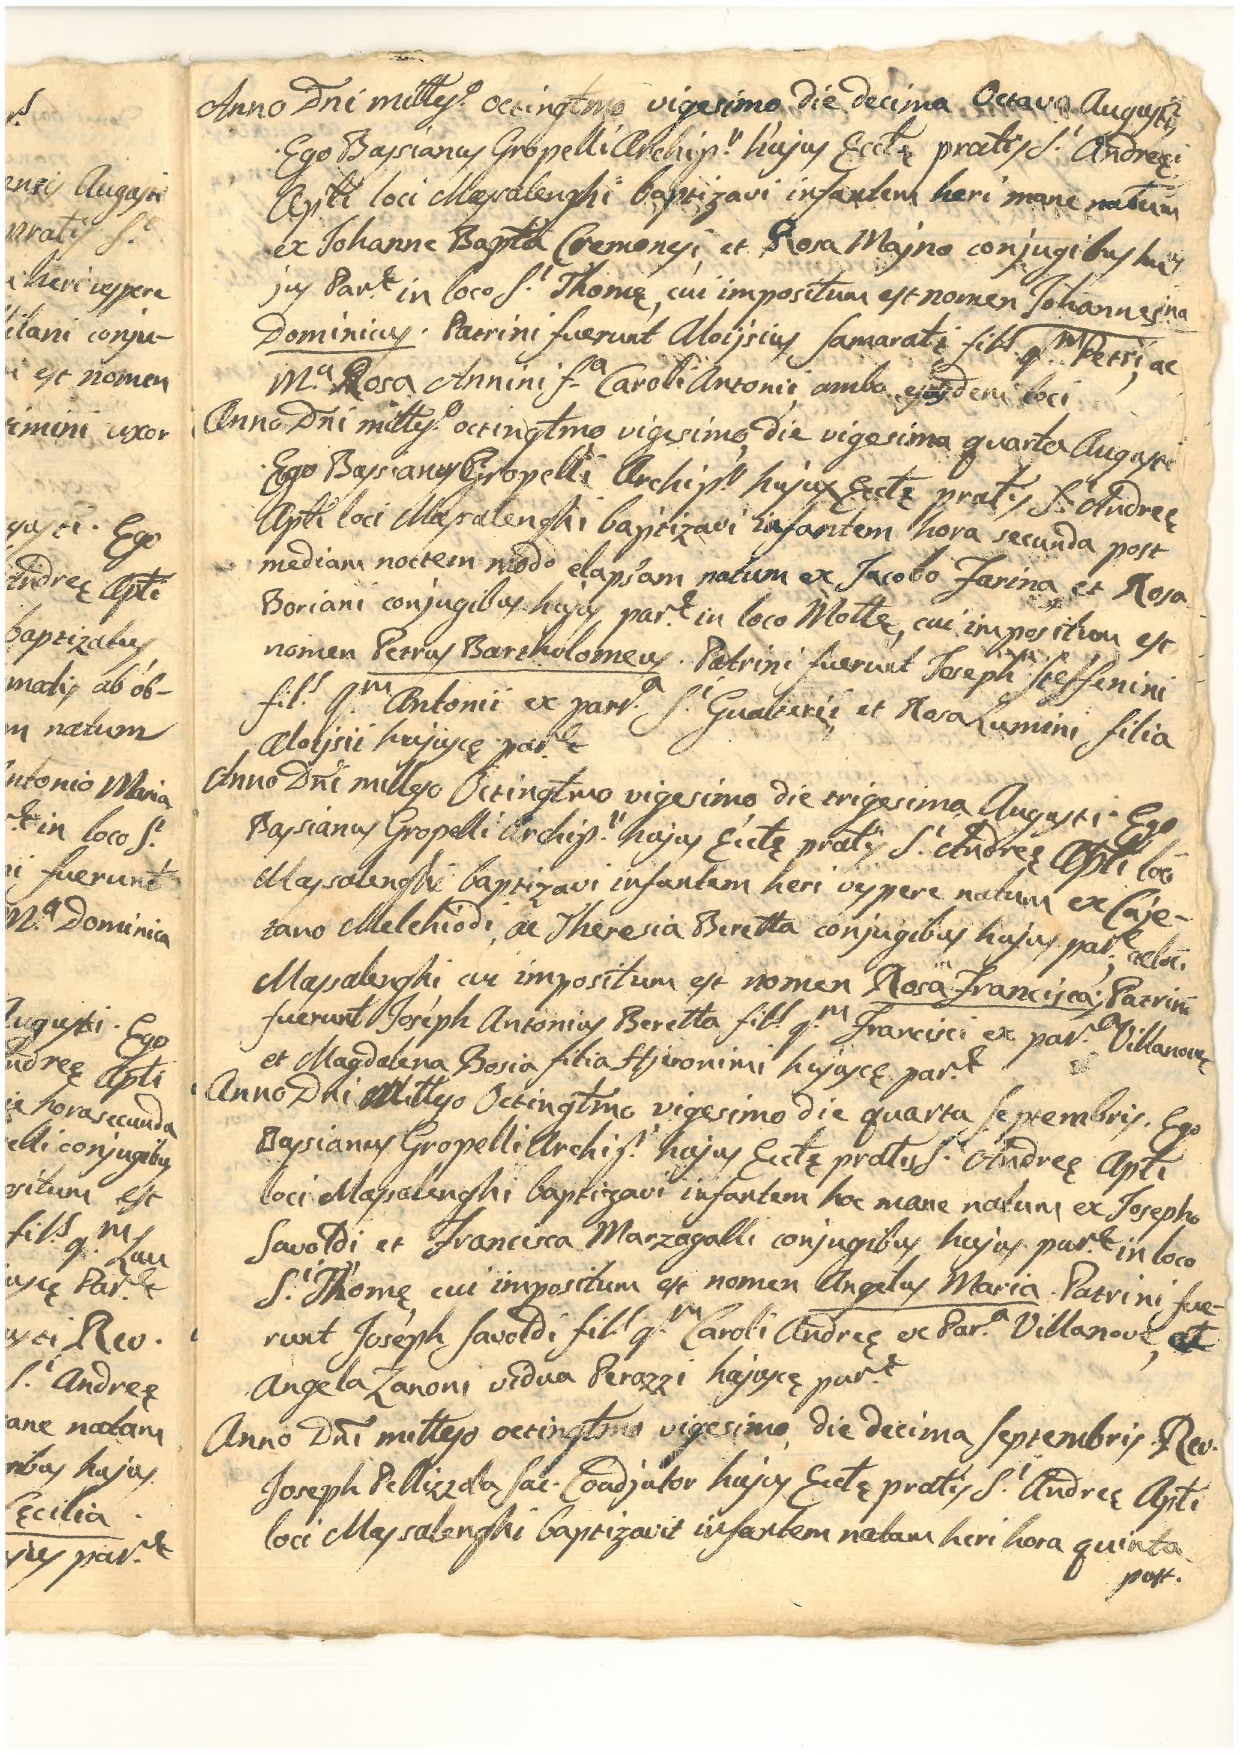 r.
ensi Augusti
prati S.i
e heri vespere
ilani conju-
i est nomen
rimini uxor
gusti. Ego
Andreę Apłi
baptizatus
matis ab ob-
m natum
Antonio Maria
in loco S.i
ni fuerunt
M.a Dominica
Augusti. Ego
ndreę Apłi
hora secunda
elli conjugibus
ositum est
fil.s q.m Lau
juscę Par.ę
usti Rev.
S.i Andreę
ane natam
nibus hujus
Cęcilia.
par.ę
Anno Dñi millesº octingtmo vigesimo die decima Octava Augusti
Ego Bassianus Gropelli Archip.r hujus Eccłę pratis S.i Andreę
Apłi loci Massalenghi baptizavi infantem heri mane natum
ex Johanne Bapta Cremonesi, et Rosa Majno conjugibus hu
jus Par.ę in loco S.i Thomę, cui impositum est nomen Johannes
Dominicus. Patrini fuerunt Aloijsius Samarati fil.s q.m Petri, ac
M.a Rosa Annini f.a Caroli Antonii, ambo ejusdem loci
Anno Dñi millesº octingtmo vigesimo, die vigesima quarta Augusti
Ego Bassianus Gropelli Archip.r hujus Eccłę pratis S.i Andreę
Apłi loci Massalenghi baptizavi infantem hora secunda post
mediam noctem modo elapsam natum ex Jacobo Farina et Rosa
Boriani conjugibus hujus par.ę in loco Mottę, cui impositum est
nomen Petrus Bartholomeus. Patrini fuerunt Joseph Steffenini
fil.s q.m Antonii ex par.a S.i Gualterii, et Rosa Lumini filia
Aloijsii hujuscę par.ę
Anno Dñi milleso Octingtmo vigesimo die trigesima Augusti. Ego
Bassianus Gropelli Archip.r hujus Eccłę pratis S.i Andreę Apłi loci
Massalenghi baptizavi infantem heri vespere natum ex Caje-
tano Melchiodi, ac Theresia Beretta conjugibus hujus par.ę, ac loci
Massalenghi cui impositum est nomen Rosa Francisca; Patrini
fuerunt Joseph Antonius Beretta fil.s q.m Francisci ex par.a Villanovę
et Magdalena Bosia filia Hjeronimi hujuscę par.ę
Anno Dñi Milleso Octingtmo vigesimo die quarta Septembris. Ego
Bassianus Gropelli Archip.r hujus Eccłę pratis S.i Andreę Apłi
loci Massalenghi baptizavi infantem hoc mane natum ex Josepho
Savoldi et Francisca Marzagalli conjugibus hujus par.ę in loco
S.i Thomę, cui impositum est nomen Angelus Maria. Patrini fue-
runt Joseph Savoldi fil.s q.m Caroli Andreę ex Par.a Villanovę, et
Angela Zanoni vidua Perazzi hujuscę par.ę
Anno Dñi milleso octingtmo vigesimo, die decima Septembris Rev.
Joseph Pellizzola Sac. Coadjutor hujus Eccłę pratis S.i Andreę Apłi
loci Massalenghi baptizavit infantem natam heri hora quinta
post.